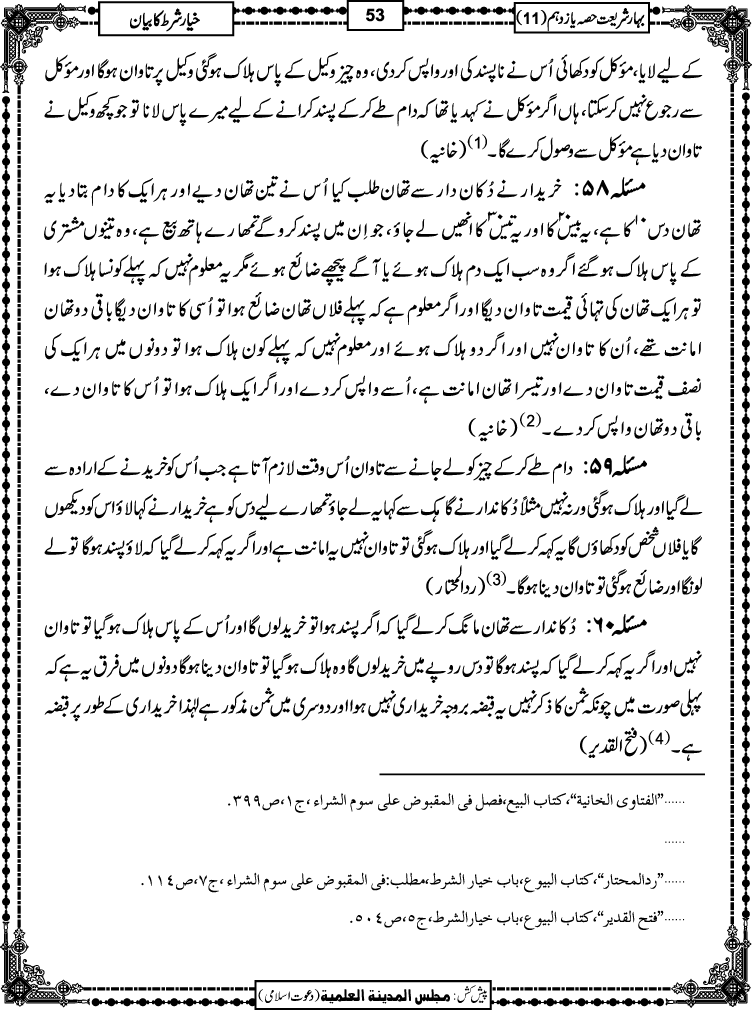 بہار شریعت حصہ یازدہم (11)
53
خیار شرط کا بیان
کے لیے لایا، مؤکل کو دکھائی اُس نے ناپسند کی اور واپس کردی، وہ چیز وکیل کے پاس ہلاک ہوگئی وکیل پر تاوان ہوگا اور مؤکل
سے رجوع نہیں کرسکتا، ہاں اگر مؤکل نے کہدیا تھا کہ دام طے کرکے پسند کرانے کے لیے میرے پاس لانا تو جو کچھ وکیل نے
تاوان دیا ہے مؤکل سے وصول کرے گا۔(1) (خانیہ)
مسئلہ ۵۸: خریدار نے دُکان دار سے تھان طلب کیا اُس نے تین تھان دیے اور ہر ایک کا دام بتادیا یہ
تھان دس۱۰ کا ہے، یہ بیس۲۰ کا اور یہ تیس۳۰ کا انھیں لے جاؤ، جو اِن میں پسند کرو گے تمھارے ہاتھ بیع ہے، وہ تینوں مشتری
کے پاس ہلاک ہوگئے اگر وہ سب ایک دم ہلاک ہوئے یا آگے پیچھے ضائع ہوئے مگر یہ معلوم نہیں کہ پہلے کونسا ہلاک ہوا
تو ہر ایک تھان کی تہائی قیمت تاوان دیگا اور اگر معلوم ہے کہ پہلے فلاں تھان ضائع ہوا تو اُسی کا تاوان دیگا باقی دو تھان
امانت تھے، اُن کا تاوان نہیں اور اگر دو ہلاک ہوئے اور معلوم نہیں کہ پہلے کون ہلاک ہوا تو دونوں میں ہر ایک کی
نصف قیمت تاوان دے اور تیسرا تھان امانت ہے، اُسے واپس کردے اور اگر ایک ہلاک ہوا تو اُس کا تاوان دے،
باقی دو تھان واپس کردے۔(2) (خانیہ)
مسئلہ ۵۹: دام طے کرکے چیز کو لے جانے سے تاوان اُس وقت لازم آتا ہے جب اُس کو خریدنے کے ارادہ سے
لے گیا اور ہلاک ہوگئی ورنہ نہیں مثلاً دُکاندار نے گاہک سے کہا یہ لے جاؤ تمھارے لیے دس کو ہے خریدار نے کہا لاؤ اس کو دیکھوں
گا یا فلاں شخص کو دکھاؤں گا یہ کہہ کر لے گیا اور ہلاک ہوگئی تو تاوان نہیں یہ امانت ہے اور اگر یہ کہہ کر لے گیا کہ لاؤ پسند ہوگا تو لے
لونگا اور ضائع ہوگئی تو تاوان دینا ہوگا۔(3) (ردالمحتار)
مسئلہ ۶۰: دُکاندار سے تھان مانگ کر لے گیا کہ اگر پسند ہوا تو خرید لوں گا اور اُس کے پاس ہلاک ہوگیا تو تاوان
نہیں اور اگر یہ کہہ کر لے گیا کہ پسند ہوگا تو دس روپے میں خرید لوں گا وہ ہلاک ہوگیا تو تاوان دینا ہوگا دونوں میں فرق یہ ہے کہ
پہلی صورت میں چونکہ ثمن کا ذکر نہیں یہ قبضہ بروجہ خریداری نہیں ہوا اور دوسری میں ثمن مذکور ہے لہٰذا خریداری کے طور پر قبضہ
ہے۔(4) (فتح القدیر)
......"الفتاوی الخانیة"، کتاب البیع، فصل فی المقبوض علی سوم الشراء، ج۱، ص۳۹۹.
......
......"ردالمحتار"، کتاب البیوع، باب خیار الشرط، مطلب: فی المقبوض علی سوم الشراء، ج۷، ص۱۱٤.
......"فتح القدیر"، کتاب البیوع، باب خیار الشرط، ج۵، ص۵۰٤.
پیش کش: مجلس المدینة العلمیة (دعوت اسلامی)